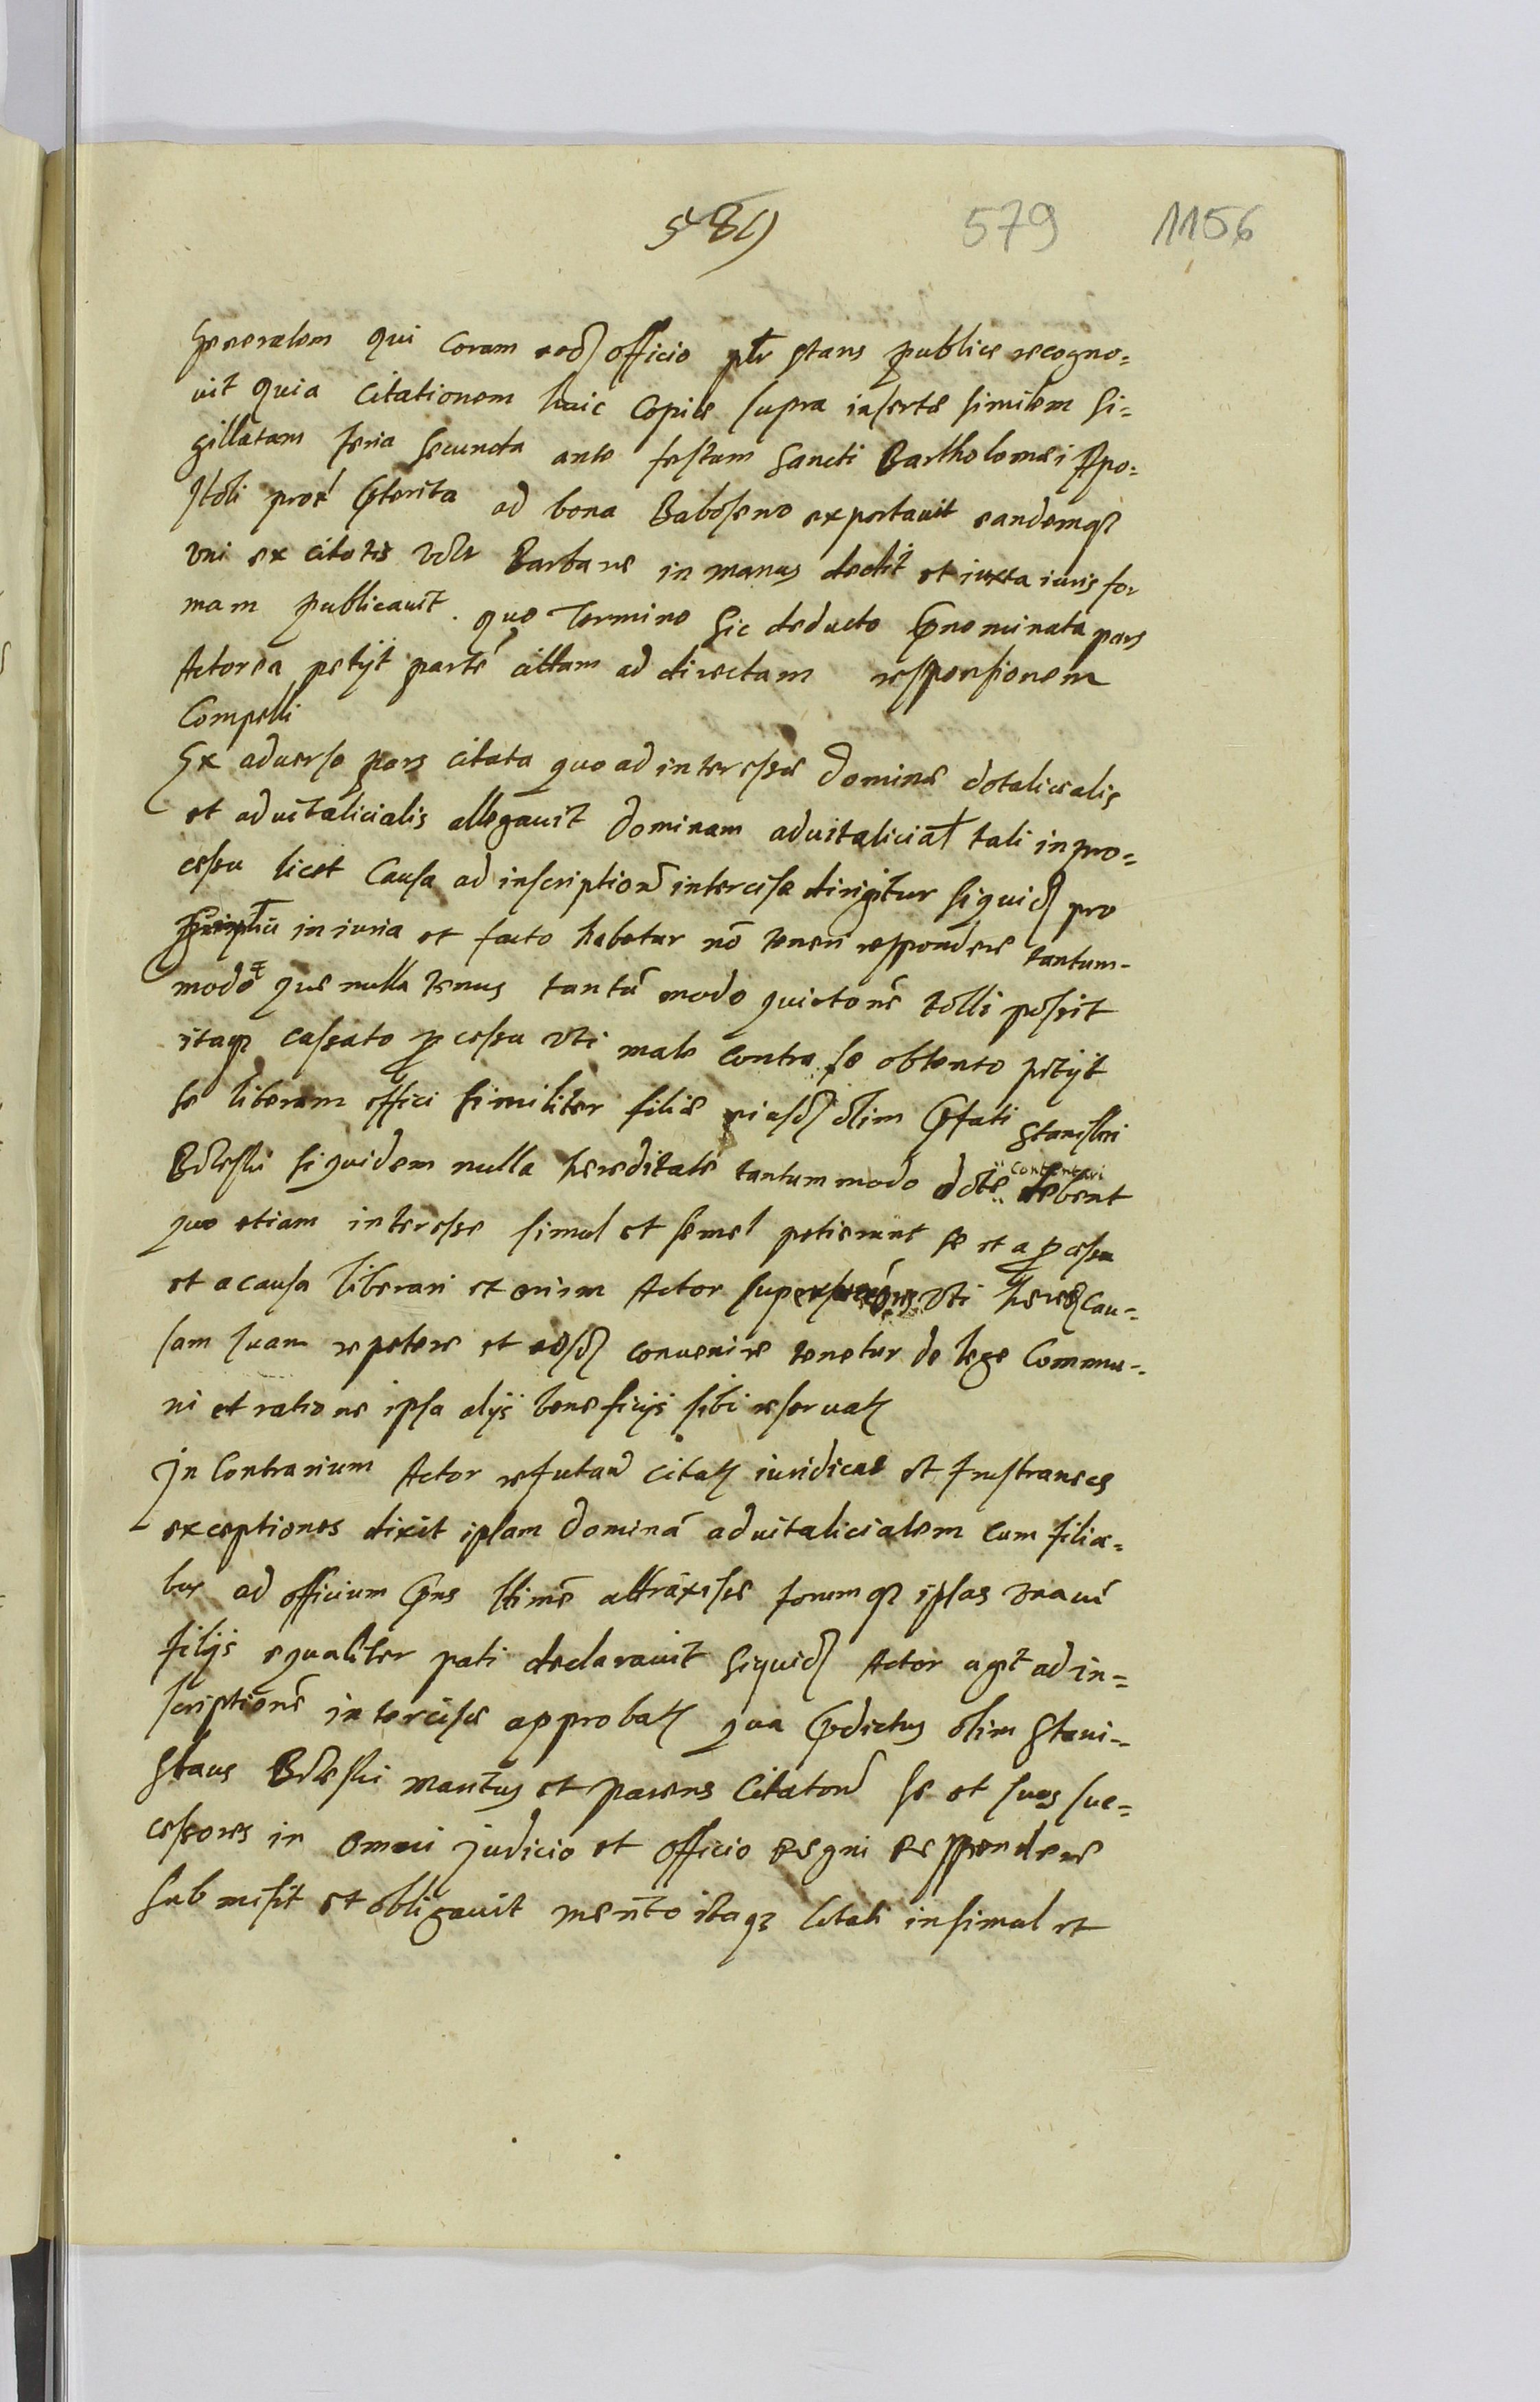 579 1156
Generalem qui coram eod officio pltr stans publice recogno=
uit quia Citationem huic Copiæ supra insertæ similem si=
gillatam feria secunda ante festum Sancti Bartholomæi Apo=
stoli prox pterita ad bona Baboseno exportauit eandemq
vni ex citatis vdlt Barbaræ in manus dedit et iuxta iuris for
mam publicauit. quo Termino sic deducto pnominata pars
Actorea petijt partē cittam ad directam responsionem
Compelli
Ex aduerso pars citata quo ad interesse dominæ dotalicialis
et aduitalicialis allegauit dominam aduitalicial tali in pro=
cessu licet Causa ad inscriptionē intercisæ dirigitur siquid pro
in iuria et facto habetur nō teneri respondere tantum-
modo quæ nulla tenus tantū modo quietone tolli possit
itaq cassato pcessu vti male contra se obtento petijt
se liberam effici similiter filiæ eiusd olim pfati Stanislai
siquidem nulla hereditate tantummodo dote contentari debent
quo etiam interesse simul et semel petierunt se et a pcessu
et a causa liberari et enim Actor vti heres Cau=
sam suam repetere et eosd conuenire tenetur de lege Commu=
ni et ratione ipsa alijs beneficijs sibi reseruatis
In Contrarium Actor refutand citat iuridicas et frustraneas
exceptiones dixit ipsam dominā aduitalicialem cum filia=
bus ad officium pns ltime attraxisse forumq ipsas vna cū
filijs equaliter pati declarauit siquid Actor agit ad in=
scriptionē intercisæ approbat qua pdictus olim Stani=
slaus maritus et parens Citatorū se et suos suc=
cessores in omni judicio et officio regni respondere
submisit et obligauit merito itaq Citati insimul et